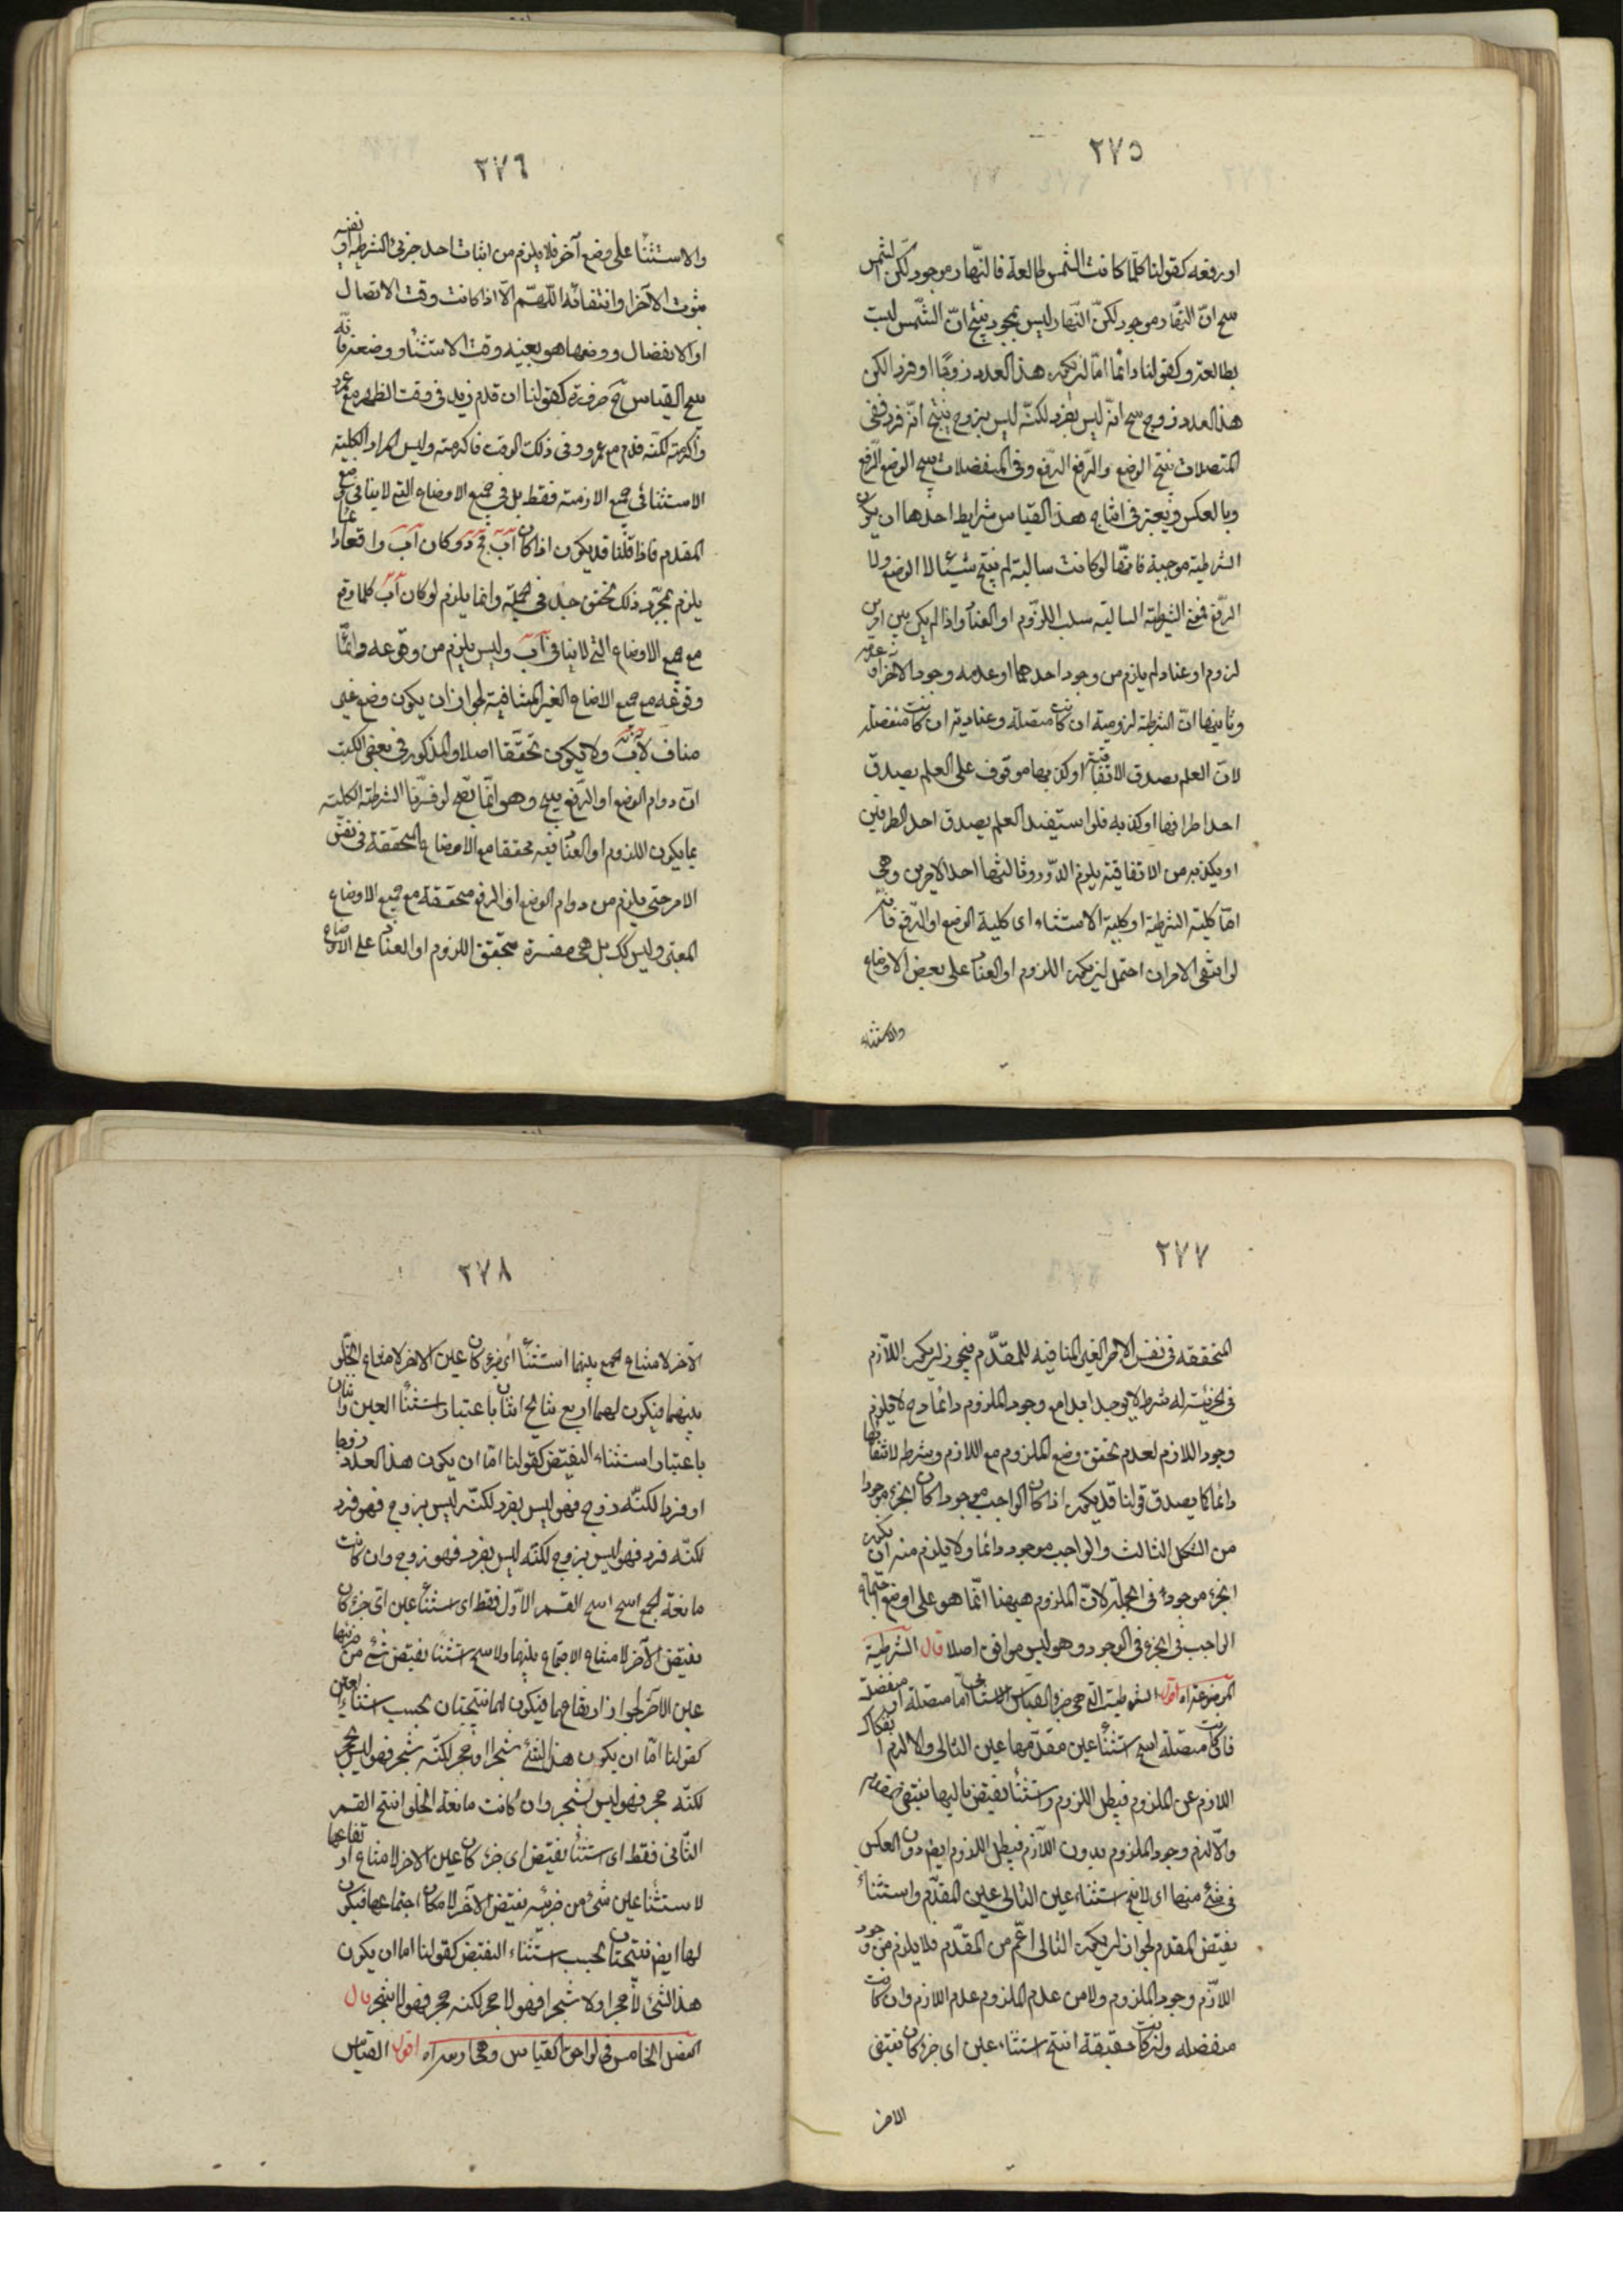 ٢٧٥
او رفعه كقولنا كلّما كانت الشمس طالعة فالنّهار موجود لكن الشمس
ينتج انّ النهار موجود لكنّ النّهار ليس بموجود ينتج انّ الشّمس ليست
بطالعة وكقولنا دائما امّا ان يكون هذا العدد زوجًا او فردا لكن
هذا العدد زوج ينتج انّه ليس بفرد لكنّه ليس بزوج ينتج انّه فرد ففى
المتصلات ينتج الوضع والرّفع الرّفع وفى المنفصلات ينتج الوضع الرّفع
وبالعكس ويعتبر فى انتاج هذا القياس شرايط احدها ان يكون
الشرطية موجبة فانّها لو كانت سالبة لم ينتج شيئا لا الوضع ولا
الرّفع فمعنى الشرطية السالبة سلب اللزوم او العناد واذا لم يكن بين امرين
لزوم او عناد لم يلزم من وجود احدهما او عدمه وجود الآخر او عدمه
وثانيها انّ الشرطية لزومية ان كانت متصلة وعنادية ان كانت منفصلة
لانّ العلم بصدق الاتفاقية او كذبها موقوف على العلم بصدق
احد اطرافها او كذبه فلو استفيد العلم بصدق احد الطرفين
او بكذبه من الاتفاقية يلزم الدّور وثالثها احد الامرين وهى
امّا كلية الشرطية او كلية الاستثناء اى كلية الوضع او الرّفع فانّه
لو انتفى الامران احتمل ان يكون اللزوم او العناد على بعض الاوضاع
والاستثناء
٢٧٦
والاستثناء على وضع آخر فلا يلزم من اثبات احد جزئى الشرطية او نفيه
ثبوت الآخر او انتفائه اللّهمّ الّا اذا كانت وقت الاتصال
او الانفصال ووضعها هو بعينه وقت الاستثناء ووضعه فانّه
ينتج القياس ح ضرورة كقولنا ان قدم زيد فى وقت الظهر مع عمرو
واكرمته لكنّه قدم مع عمرو وفى ذلك الوقت فاكرمته وليس المراد الكلية
الاستثنائى جميع الازمنة فقط بل فى جميع الاوضاع التى لا ينافى وضع
المقدم فاذا قلنا قد يكون اذا كان اب فج د وكان اب واقعا دائما
يلزم بمجرّد ذلك تحقق ج د فى الجملة وانما يلزم لو كان اب كلما وقع
مع جميع الاوضاع التى لا ينافى اب وليس يلزم من وقوعه دائمًا
وقوعه مع جميع الاوضاع الغير المنافية لجواز ان يكون وضع غير
مناف لاب ولا يكون تحقّقا اصلا والمذكور فى بعض الكتب
انّ دوام الوضع او الرّفع ينتج وهو انّما يصّح لو فسّرنا الشرطية الكلية
بما يكون اللزوم او العناد فيه محققا مع الاوضاع المحققة فى نفس
الامر حتى يلزم من دوام الوضع او الرفع متحققة مع جميع الاوضاع
المعتبر وليس كك بل هى مفسرة بتحقق اللزوم او العناد على الاوضاع
٢٧٧
المتحققة فى نفس الامر الغير المنافية للمقدّم فيجوز ان يكون اللاّزم
فى الجزئية له شرط لا يوجد ابدا مع وجود الملزوم دائما وح لا يلزم
وجود اللازم لعدم تحقق وضع الملزوم مع اللازم وشرطه لانتفائها
دائما كما يصدق قولنا قد يكون اذا كان الواجب موجودا كان الجزء موجودا
من الشكل الثالث والواجب موجود دائما ولا يلزم منه ان يكون
الجزء موجودا فى الجملة لانّ الملزوم هيهنا انّما هو على وضع اجتماع
الواجب فى الجزء فى الوجود وهو ليس موافق اصلا قال الشرطية
الموضوعة اه اقول الشرطية التى هى جزء القياس الاستثنائى امّا متصلة او منفصلة
فان كانت متصلة انتج استثناء عين مقدّمها عين التالى والا لزم انفكاك
اللازم عن الملزوم فيبطل اللزوم واستثناء نقيض تاليها نقيض مقدمه
والّا لزم وجود الملزوم بدون اللّازم فيبطل اللزوم ايضا دون العكس
فى شئ منها اى لا ينتج استثناء عين التالى عين المقدّم واستثناء
نقيض المقدم لجواز ان يكون التالى اعّم من المقدّم فلا يلزم من وجود
اللاّزم وجود الملزوم ولا من عدم الملزوم عدم اللازم وان كانت
منفصله وان كانت حقيقة انتج استثناء عين اى جزء كان نقيض
الاخر
٢٧٨
الآخر لامتناع الجمع بينهما استثناء اى جزء كان عين الاخر لامتناع الخلّو
بينهما فيكون لهما اربع نتايج اثنان باعتبار استثناء العين واثنان
باعتبار استثناء النقيض كقولنا امّا ان يكون هذا العدد زوجا
او فردا لكنّه زوج فهو ليس بفرد لكنّه ليس بزوج فهو فرد
لكنّه فرد فهو ليس بزوج لكنّه ليس بفرد فهو زوج وان كانت
مانعة الجمع انتج القسم الاّول فقط اى استثناء عين اى جزء كان
نقيض الآخر لامتناع الاجتماع بينهما ولا ينتج استثناء نقيض شئ من جزئيها
عين الآخر لجواز ارتفاعهما فيكون لها نتيجتان بحسب استثناء العين
كقولنا امّا ان يكون هذا الشئ شجرا او حجر لكنّه شجر فهو ليس بحجر
لكنّه حجر فهو ليس بشجر وان كانت مانعة الخلو انتج القسم
الثّانى فقط اى استثناء نقيض اى جزء كان عين الاخر لامتناع ارتفاعها
لا ستثناء عين شئ من جزئيه نقيض الآخر لامكان اجتماعها فيكون
لها ايضا نتيجتان بحسب استثناء النقيض كقولنا اما ان يكون
هذا الشئ لا حجرا ولا شجرا فهو لا حجر لكنه حجر فهو لا شجر قال
الفصل الخامس فى لواحق القياس وهى اربعة اه اقول القياس